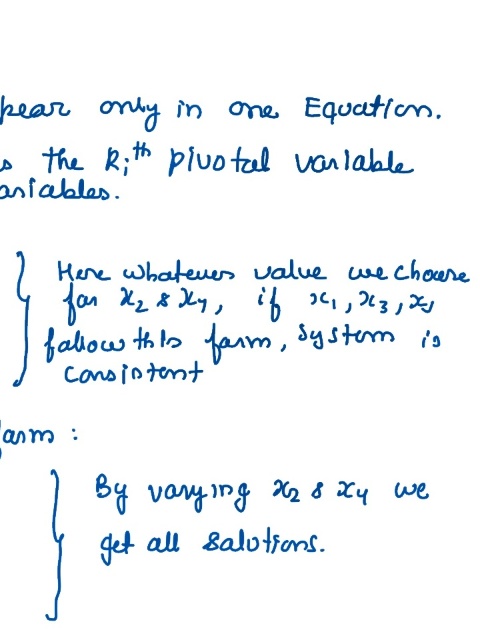 pear only in one Equation.
s the Rᵢᵗʰ pivotal variable
ariables.
Here whatever value we choose
for x₂ & x₄, if x₁, x₃, x₅
follow this form, system is
consistent
form :
By varying x₂ & x₄ we
get all solutions.